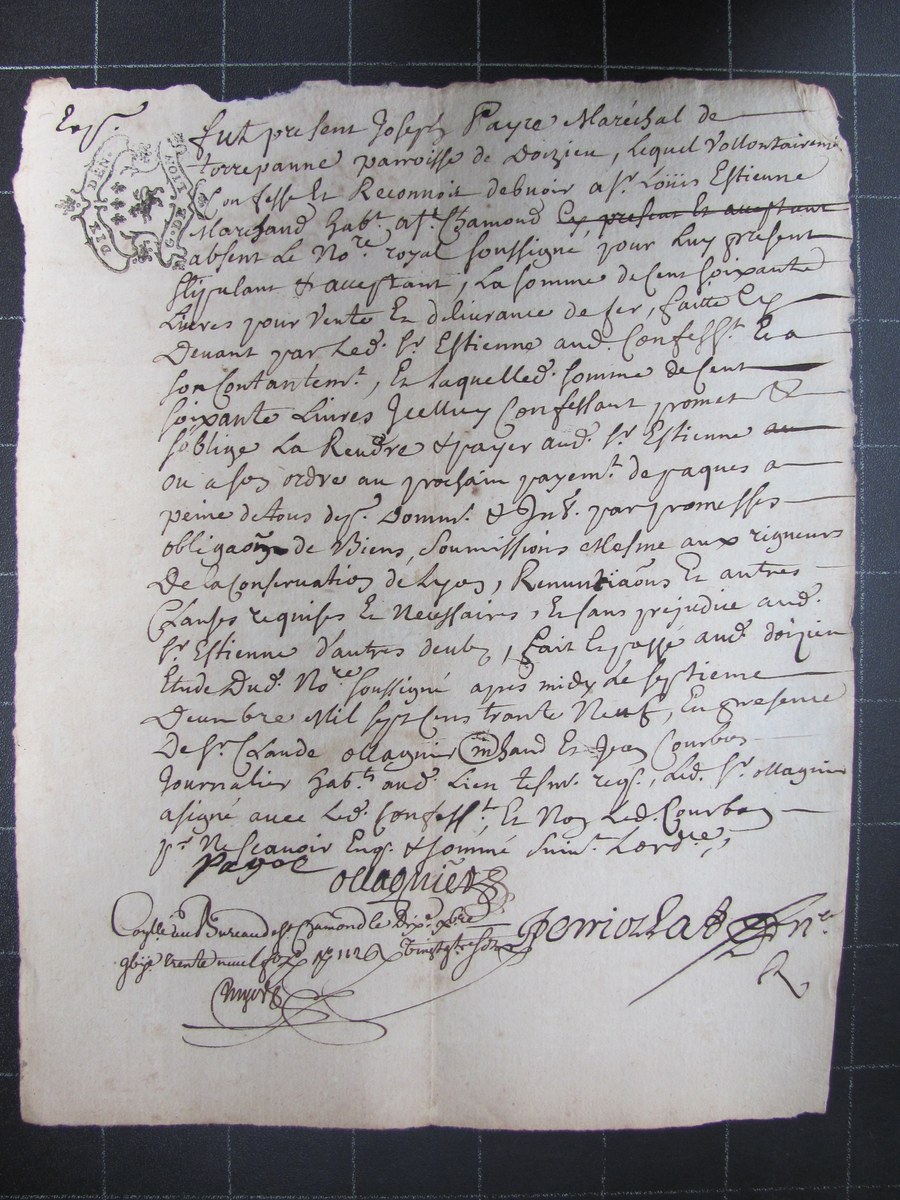 Exp.
fut present Joseph Payre Maréchal de
torrepanne parroisse de Doizieu, lequel Vollontairemt
Confesse Et Reconnoit debuoir a sr. Loüis Estienne
Marchand habt. a st. Chamond Ey, present Et acceptant
absent Le Nore. royal soussigné pour Luy present
stipulant & acceptant, La somme de Cent soixante
Livres pour Vente Et deliurance de fer, faitte Cy
Devant par Led. sr. Estienne aud. Confesst. Et a
son Contantemt., Et laquelled. somme de Cent
soixante Livres Jcelluy Confessant promet &
s'oblige La Rendre & payer aud. sr. Estienne au
ou a son ordre au prochain payemt. de paques a
peine de tous dep. Domm. & Int. par promesses
obligaons de Biens, Soumissions Mesme aux rigueurs
De la Conseruation de Lyon, Renuntiaons Et autres
Clauses requises Et Necessaires, Et sans prejudice aud.
sr. Estienne d'autres deubs, fait Et passé aud. doizieu
Etude Dud. Nore. soussigné apres midy Le septieme
Decembre Mil sept Cens trante Neuf, En presence
De sr. Claude ollagnier mchand Et Jean Courbon
Journalier habts. aud. Lieu tesm. reqs., Led. sr. ollagnier
a signé avec Led. Confesst. Et Non Led. Courbon
pr. Ne scauoir Enq. & sommé suiut. Lordce.
Payre
ollagnier
Conllé au Bureau de st Chamond le Dixe. xbre
trente neuf
DIX DEN
G. DE LION